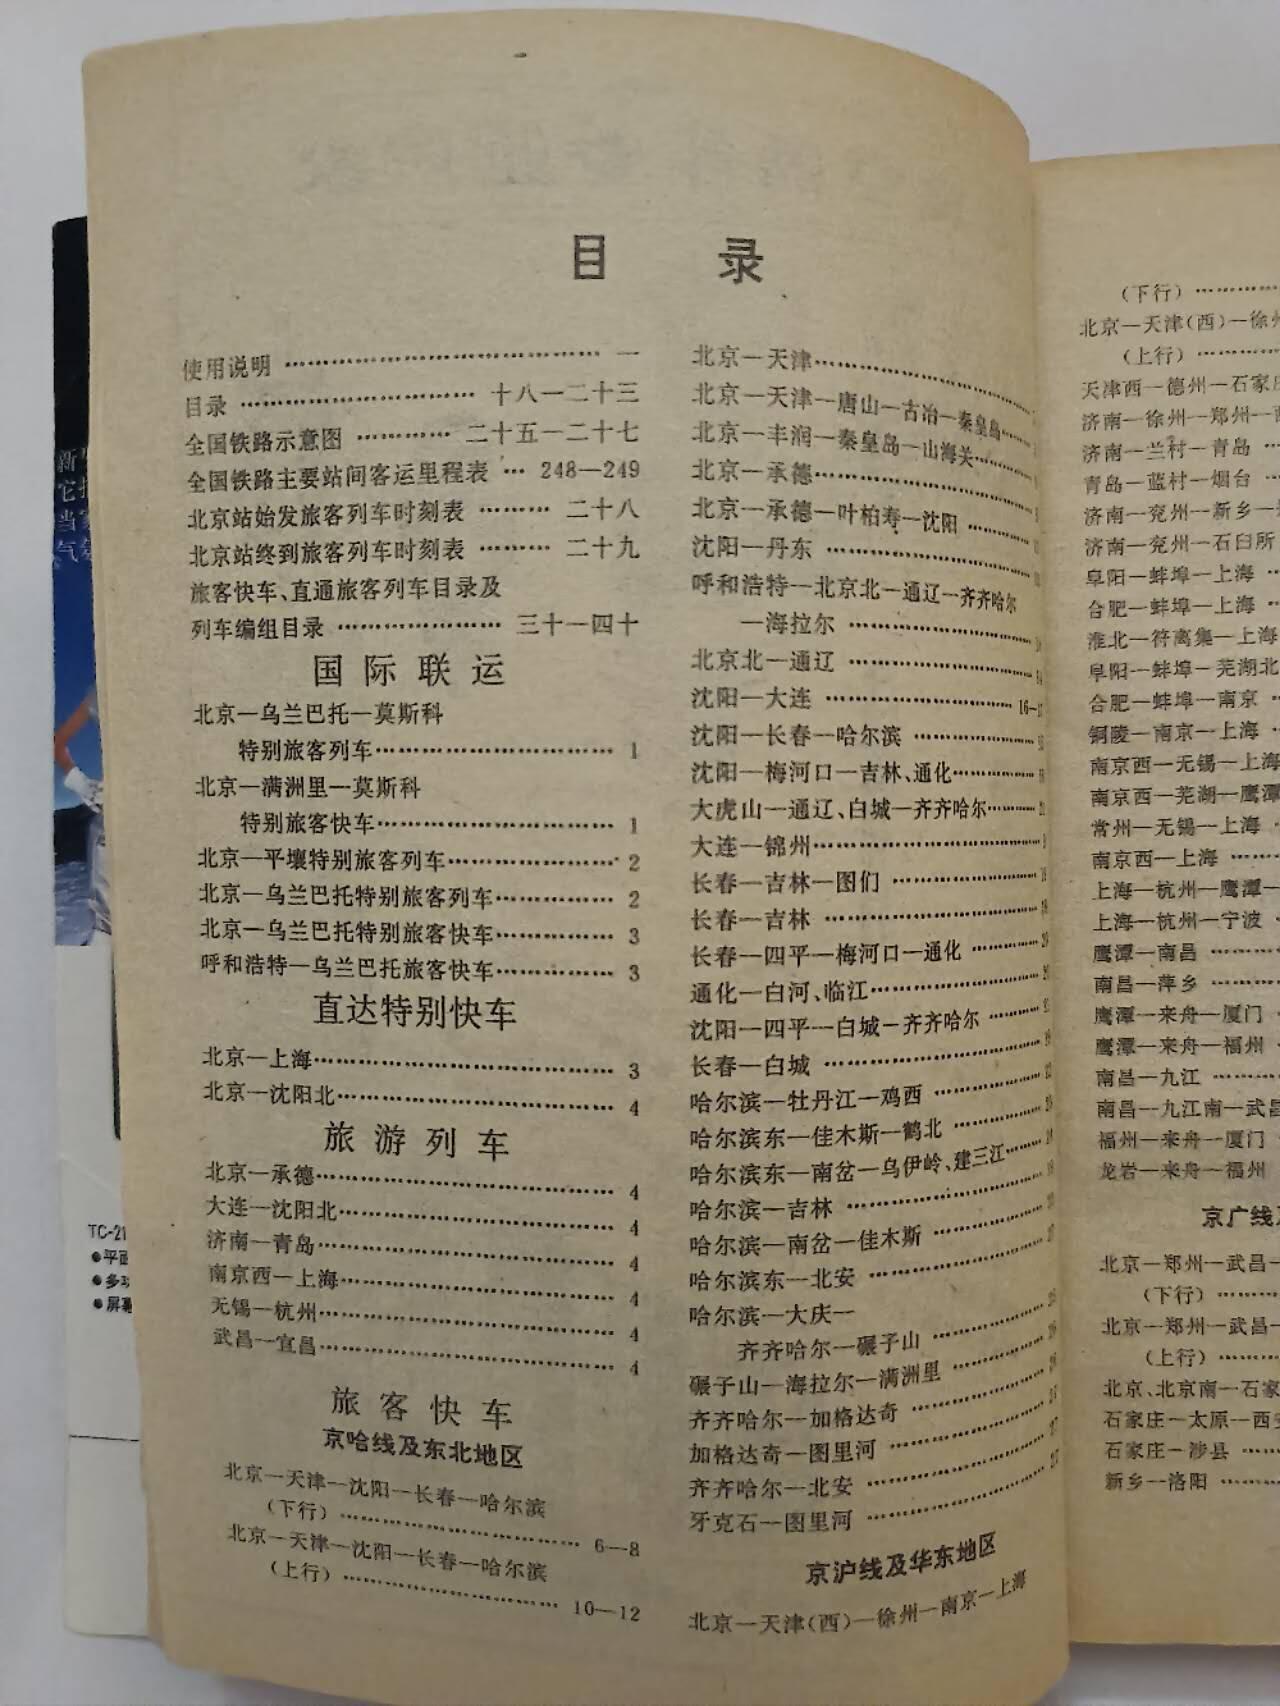 目 录
使用说明 …… 一
目录 …… 十八—二十三
全国铁路示意图 …… 二十五—二十七
全国铁路主要站间客运里程表 … 248—249
北京站始发旅客列车时刻表 …… 二十八
北京站终到旅客列车时刻表 …… 二十九
旅客快车、直通旅客列车目录及
列车编组目录 …… 三十一四十
国际联运
北京—乌兰巴托—莫斯科
特别旅客列车…… 1
北京—满洲里—莫斯科
特别旅客快车…… 1
北京—平壤特别旅客列车…… 2
北京—乌兰巴托特别旅客列车…… 2
北京—乌兰巴托特别旅客快车…… 3
呼和浩特—乌兰巴托旅客快车…… 3
直达特别快车
北京—上海…… 3
北京—沈阳北…… 4
旅游列车
北京—承德…… 4
大连—沈阳北…… 4
济南—青岛…… 4
南京西—上海…… 4
无锡—杭州…… 4
武昌—宜昌…… 4
旅客快车
京哈线及东北地区
北京—天津—沈阳—长春—哈尔滨
(下行) …… 6—8
北京—天津—沈阳—长春—哈尔滨
(上行) …… 10—12
北京—天津……
北京—天津—唐山—古冶—秦皇岛……
北京—丰润—秦皇岛—山海关……
北京—承德……
北京—承德—叶柏寿—沈阳 ……
沈阳—丹东 ……
呼和浩特—北京北—通辽—齐齐哈尔
—海拉尔 ……
北京北—通辽 ……
沈阳—大连 …… 16—17
沈阳—长春—哈尔滨 ……
沈阳—梅河口—吉林、通化……
大虎山—通辽、白城—齐齐哈尔……
大连—锦州……
长春—吉林—图们 ……
长春—吉林 ……
长春—四平—梅河口—通化 ……
通化—白河、临江……
沈阳—四平—白城—齐齐哈尔 ……
长春—白城 ……
哈尔滨—牡丹江—鸡西 ……
哈尔滨东—佳木斯—鹤北 ……
哈尔滨东—南岔—乌伊岭、建三江……
哈尔滨—吉林 ……
哈尔滨—南岔—佳木斯 ……
哈尔滨东—北安 ……
哈尔滨—大庆—
齐齐哈尔—碾子山 ……
碾子山—海拉尔—满洲里 ……
齐齐哈尔—加格达奇 ……
加格达奇—图里河 ……
齐齐哈尔—北安 ……
牙克石—图里河 ……
京沪线及华东地区
北京—天津(西)—徐州—南京—上海
(下行) ……
北京—天津(西)—徐州
(上行) ……
天津西—德州—石家庄
济南—徐州—郑州—
济南—兰村—青岛 …
青岛—蓝村—烟台 …
济南—兖州—新乡—
济南—兖州—石臼所
阜阳—蚌埠—上海 …
合肥—蚌埠—上海 …
淮北—符离集—上海
阜阳—蚌埠—芜湖北
合肥—蚌埠—南京 …
铜陵—南京—上海 …
南京西—无锡—上海
南京西—芜湖—鹰潭
常州—无锡—上海 …
南京西—上海 ……
上海—杭州—鹰潭—
上海—杭州—宁波 …
鹰潭—南昌 ……
南昌—萍乡 ……
鹰潭—来舟—厦门 …
鹰潭—来舟—福州 …
南昌—九江 ……
南昌—九江南—武昌
福州—来舟—厦门
龙岩—来舟—福州
京广线
北京—郑州—武昌—
(下行) ……
北京—郑州—武昌—
(上行) ……
北京、北京南—石家
石家庄—太原—西安
石家庄—涉县 ……
新乡—洛阳 ……
新
它
当
气
TC-21
●平面
●多功
●屏幕